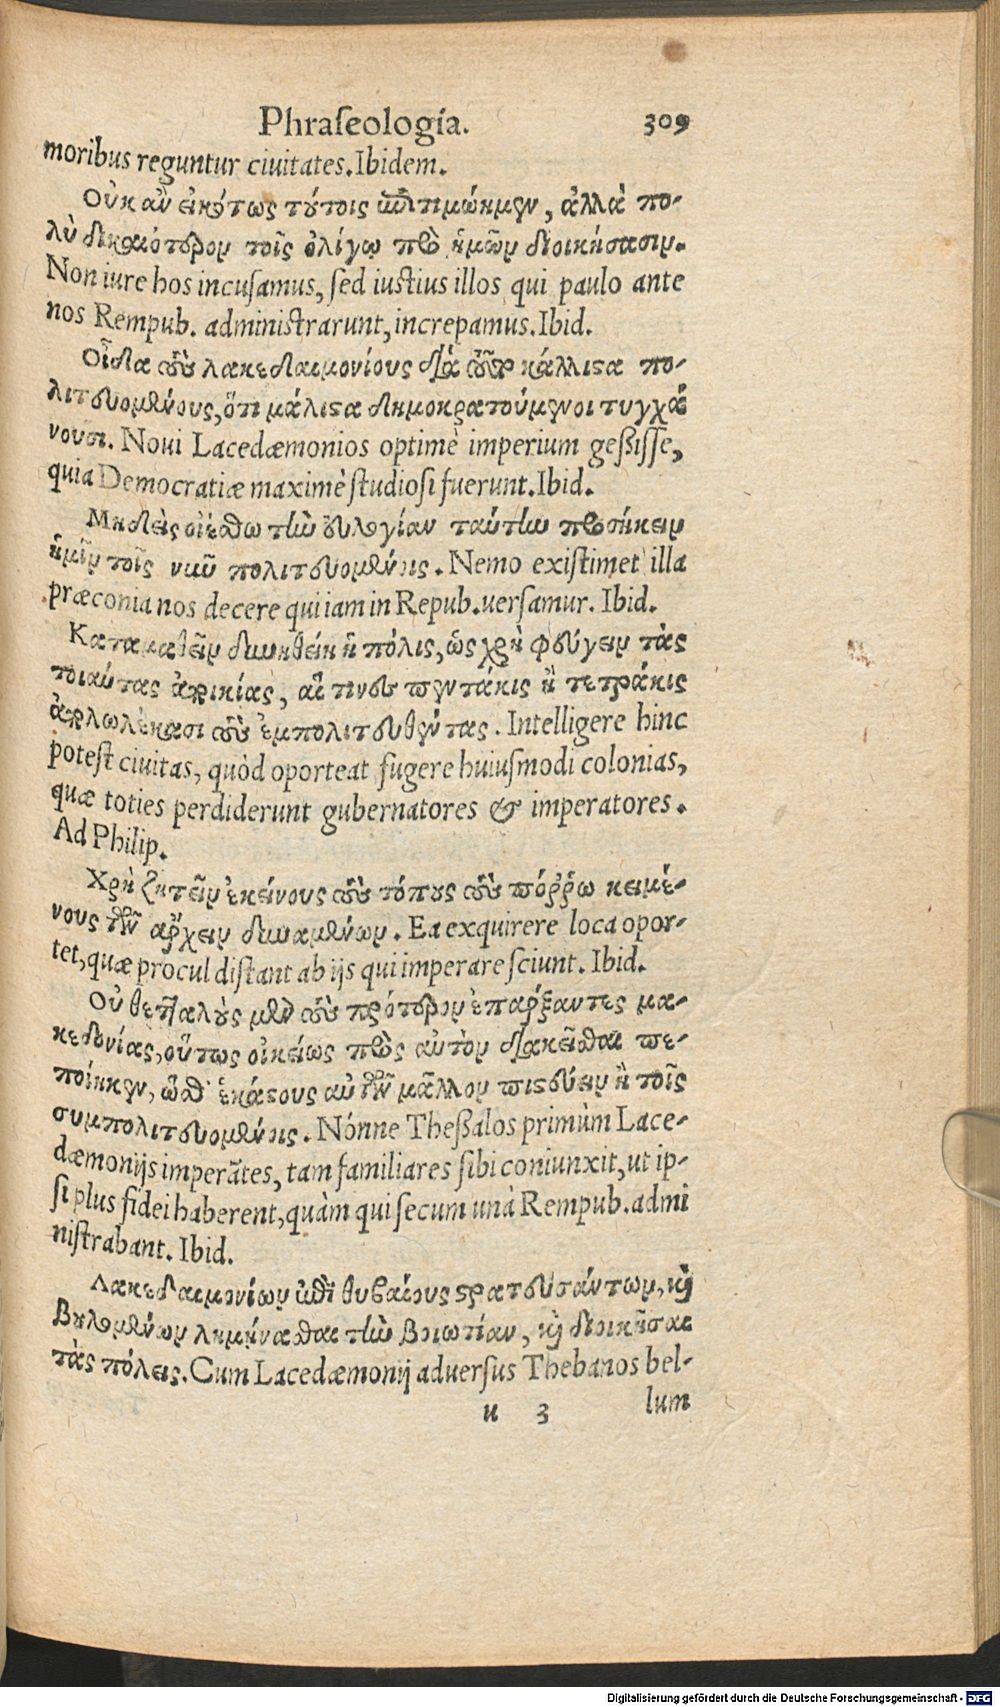 Phraseologia. 309
moribus reguntur ciuitates. Ibidem.
Οὐκ ἂν εἰκότως τούτοις ἐπιτιμῴημεν, ἀλλὰ πο-
λὺ δικαιότερον τοῖς ὀλίγῳ πρὸ ἡμῶν διοικήσασιν.
Non iure hos incusamus, sed iustius illos qui paulo ante
nos Rempub. administrarunt, increpamus. Ibid.
Οἶδα τοὺς λακεδαιμονίους διὰ τοῦτο κάλλιστα πο-
λιτευομένους, ὅτι μάλιστα δημοκρατούμενοι τυγχά
νουσι. Noui Lacedæmonios optimè imperium geßisse,
quia Democratiæ maximè studiosi fuerunt. Ibid.
Μηδεὶς οἰέσθω τὴν εὐλογίαν ταύτην προσήκειν
ἡμῖν τοῖς νῦν πολιτευομένοις. Nemo existimet illa
præconia nos decere qui iam in Repub. uersamur. Ibid.
Καταμαθεῖν δυνηθείη ἡ πόλις, ὡς χρὴ φεύγειν τὰς
τοιαύτας ἀποικίας, αἵ τινες πεντάκις ἢ τετράκις
ἀπολωλέκασι τοὺς ἐμπολιτευθέντας. Intelligere hinc
potest ciuitas, quòd oporteat fugere huiusmodi colonias,
quæ toties perdiderunt gubernatores & imperatores.
Ad Philip.
Χρὴ ζητεῖν ἐκείνους τοὺς τόπους τοὺς πόῤῥω κειμέ-
νους τῶν ἄρχειν δυναμένων. Ea exquirere loca opor-
tet, quæ procul distant ab ijs qui imperare sciunt. Ibid.
Οὐ θετταλοὺς μὲν τοὺς πρότερον ἐπαρξαντες μα-
κεδονίας, οὕτως οἰκείως πρὸς αὐτὸν διακεῖσθαι πε-
ποίηκεν, ὥσθ' ἑκάστους αὐτῶν μᾶλλον πιστεύειν ἢ τοῖς
συμπολιτευομένοις. Nónne Theßalos primùm Lace-
dæmonijs imperātes, tam familiares sibi coniunxit, ut ip-
si plus fidei haberent, quàm qui secum unà Rempub. admi
nistrabant. Ibid.
Λακεδαιμονίων ἐπὶ θηβαίους στρατευσάντων, καὶ
βουλομένων λυμήνασθαι τὴν βοιωτίαν, καὶ διοικῆσαι
τὰς πόλεις. Cum Lacedæmonij aduersus Thebanos bel-
u 3 lum
Digitalisierung gefördert durch die Deutsche Forschungsgemeinschaft - DFG